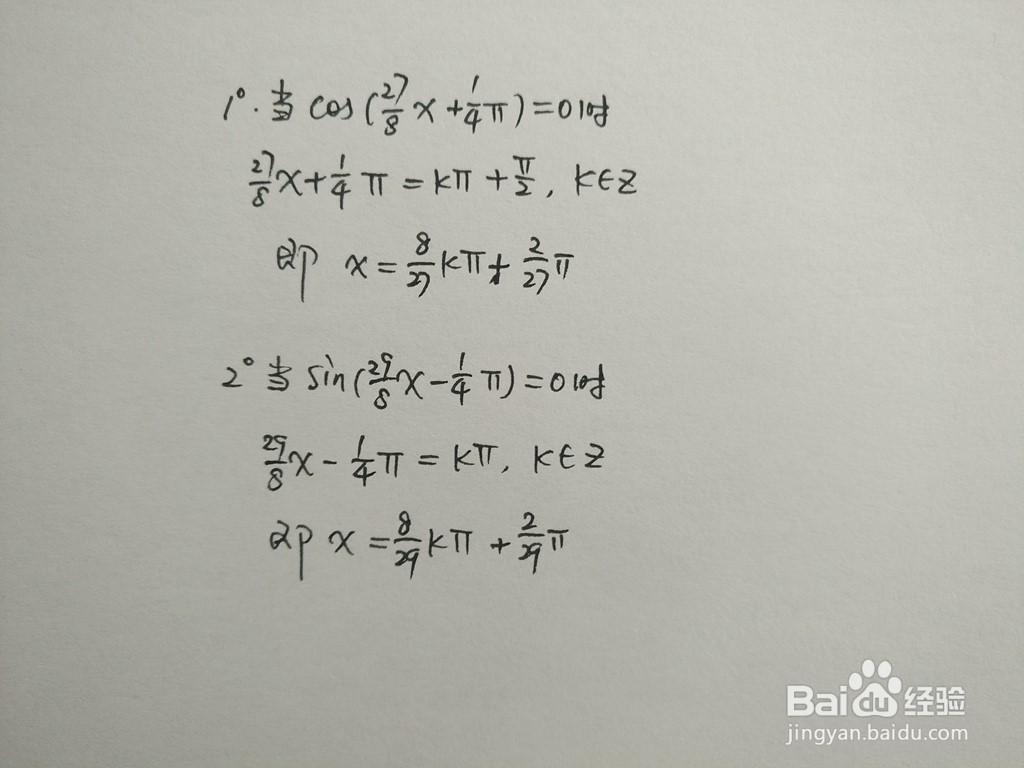 1°. 当 cos(27/8 x + 1/4 π) = 0 时
27/8 x + 1/4 π = kπ + π/2, k∈Z
即 x = 8/27 kπ + 2/27 π
2° 当 sin(29/8 x - 1/4 π) = 0 时
29/8 x - 1/4 π = kπ, k∈Z
即 x = 8/29 kπ + 2/29 π
Bai du 经验
jingyan.baidu.com